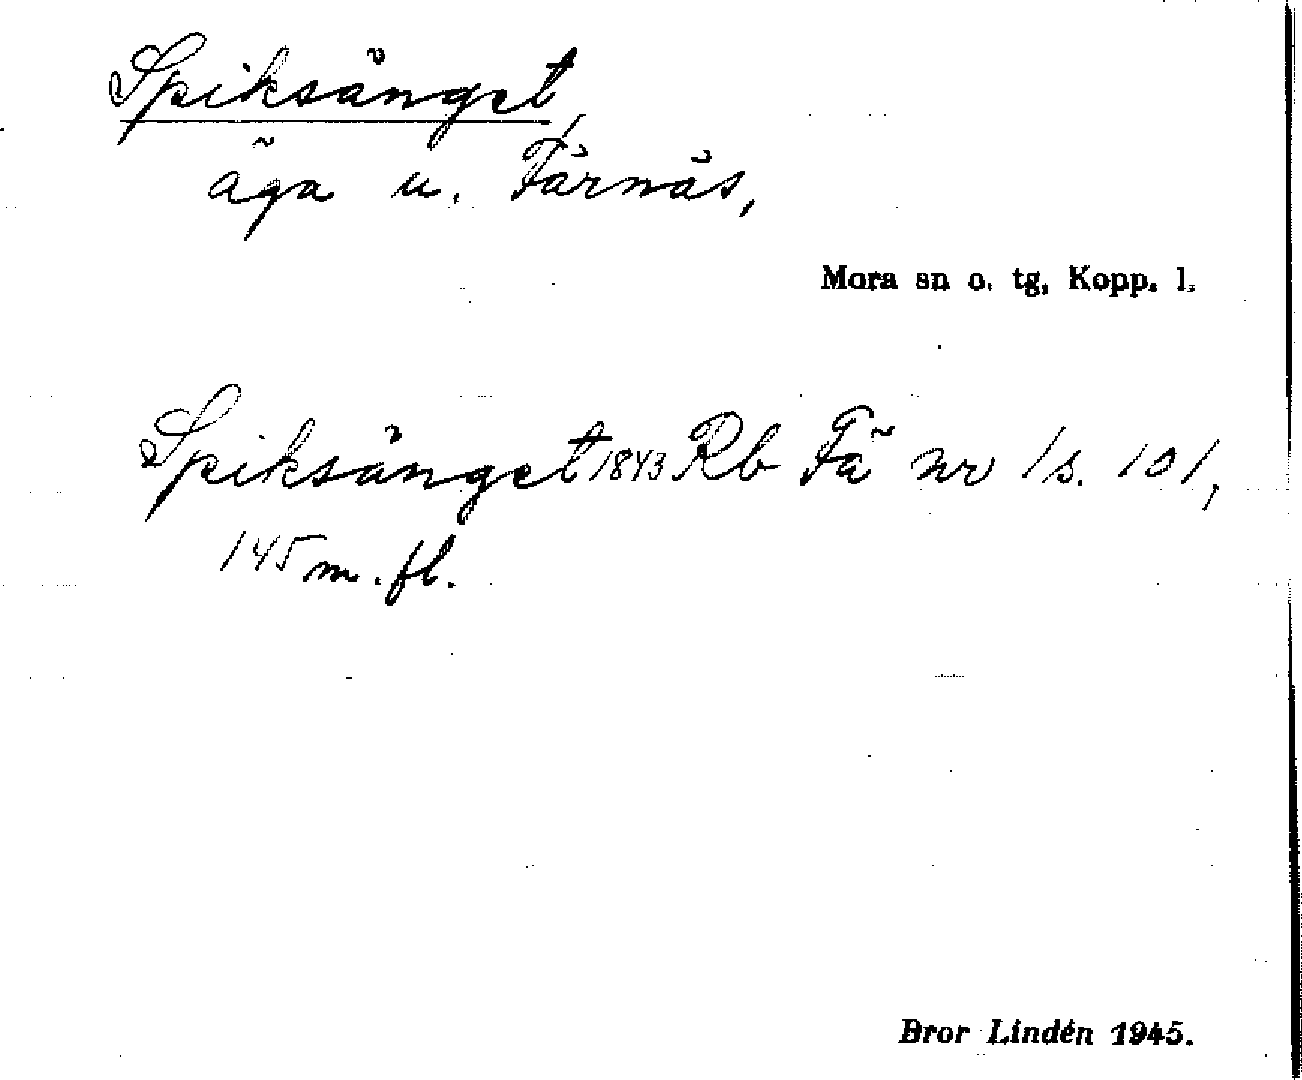 Spiksänget,
äga u. Färnäs,
Mora sn o. tg, Kopp. l.
Spiksänget 1843 Rb Fä nr 1 s. 101,
145 m. fl.
Bror Lindén 1945.